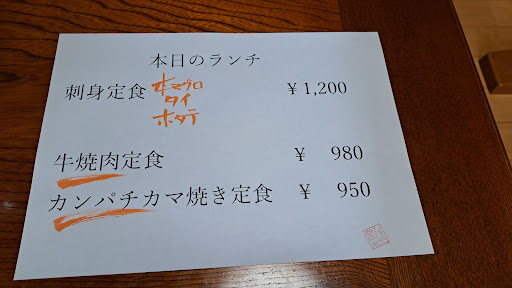 本日のランチ
刺身定食 本マグロ ¥1,200
タイ
ホタテ
牛焼肉定食 ¥ 980
カンパチカマ焼き定食 ¥ 950